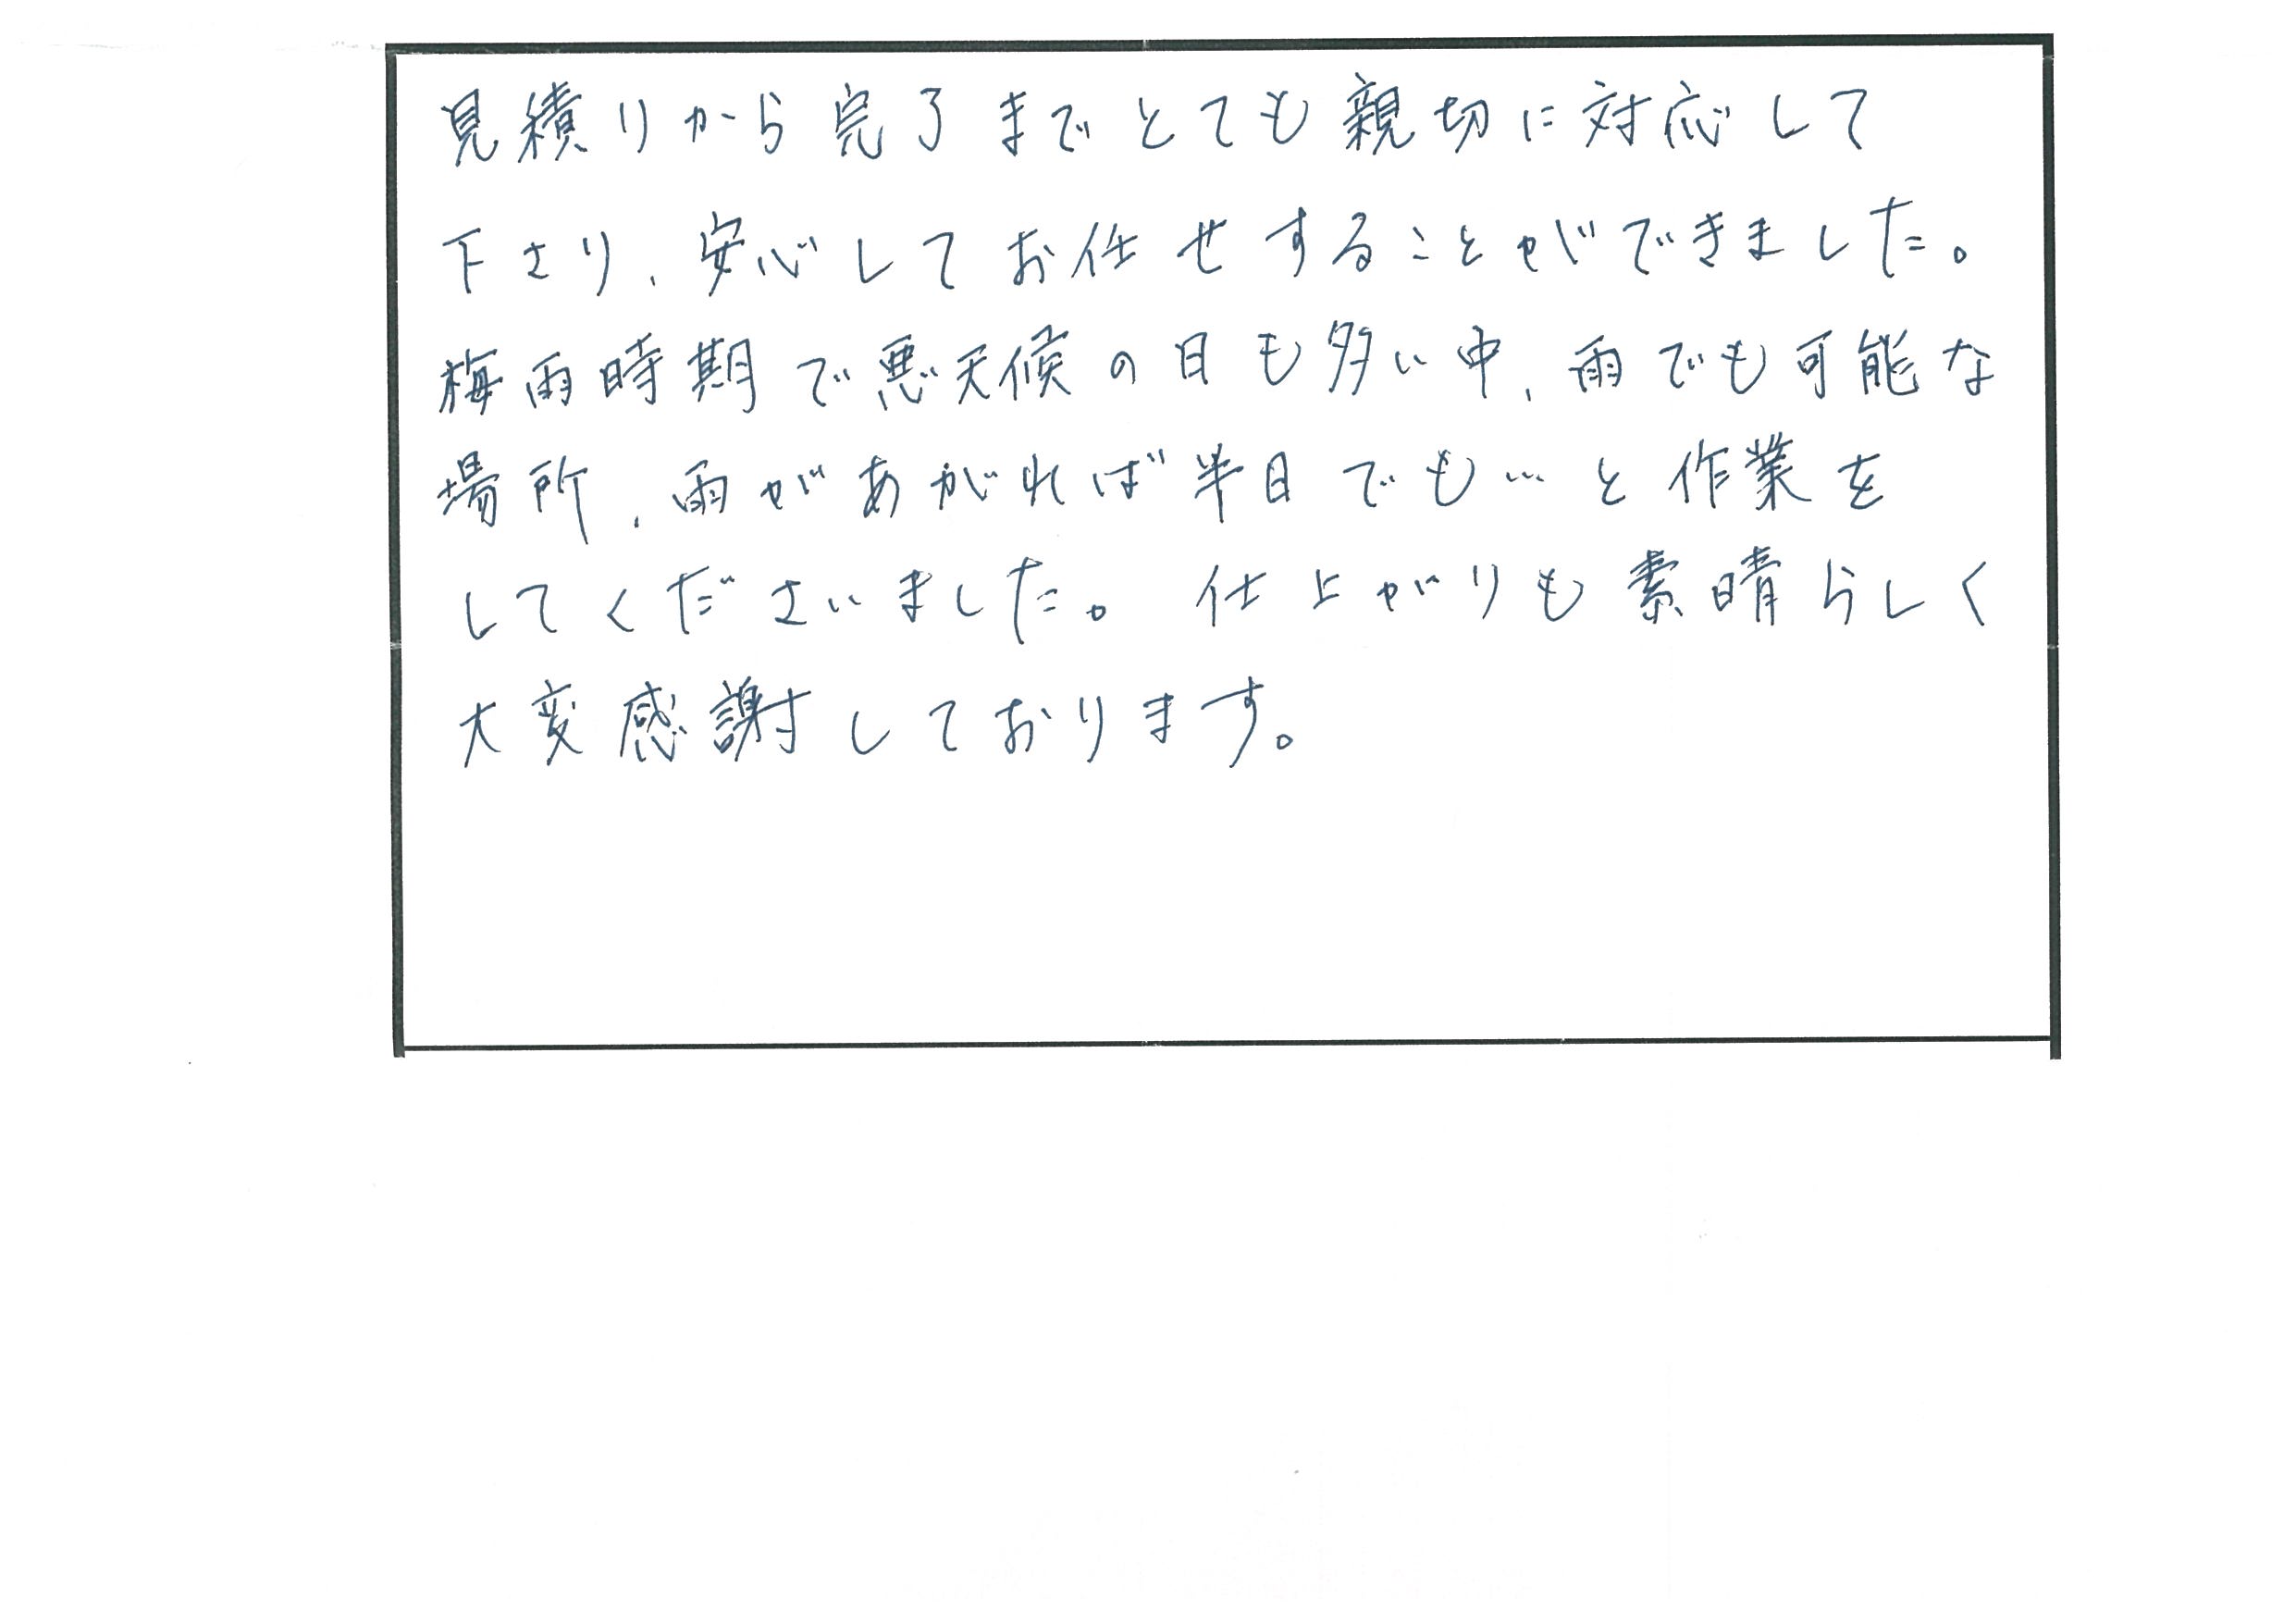 見積りから完了までとても親切に対応して
下さり、安心してお任せすることができました。
梅雨時期で悪天候の日も多い中、雨でも可能な
場所、雨があがれば半日でも…と作業を
してくださいました。仕上がりも素晴らしく
大変感謝しております。